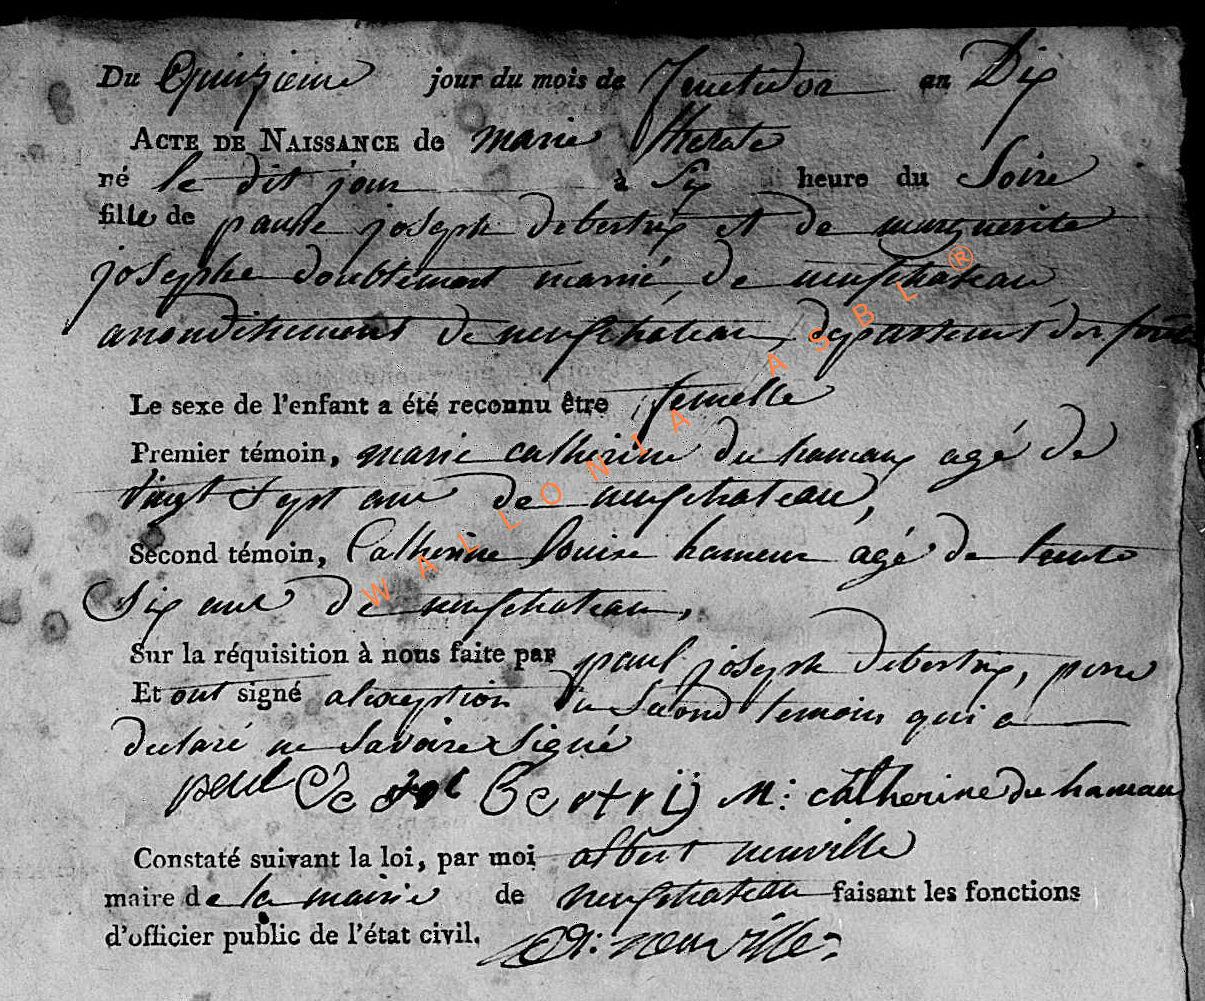 Du Quinzieme jour du mois de fructidor an Dix
ACTE DE NAISSANCE de marie therese
né le dit jour à Six heure du Soire
fille de paulle joseph debertrix et de marguerite
josephe doublemont marié de neufchateau
arrondissement de neufchateau, departement des forêts
Le sexe de l'enfant a été reconnu être femelle
Premier témoin, marie catherine du hameau agé de
vingt Sept ans de neufchateau,
Second témoin, Catherine Louise hameux agé de trente
Six ans de neufchateau,
Sur la réquisition à nous faite par paul joseph debertrix, pere
Et ont signé alexeption du Second temoin qui a
declaré ne Savoire Signé
paul bertrij M: catherine du hameau
Constaté suivant la loi, par moi albert neuville
maire de la mairie de neufchateau faisant les fonctions
d'officier public de l'état civil. A: neuville
WALLONIA ASBL ®